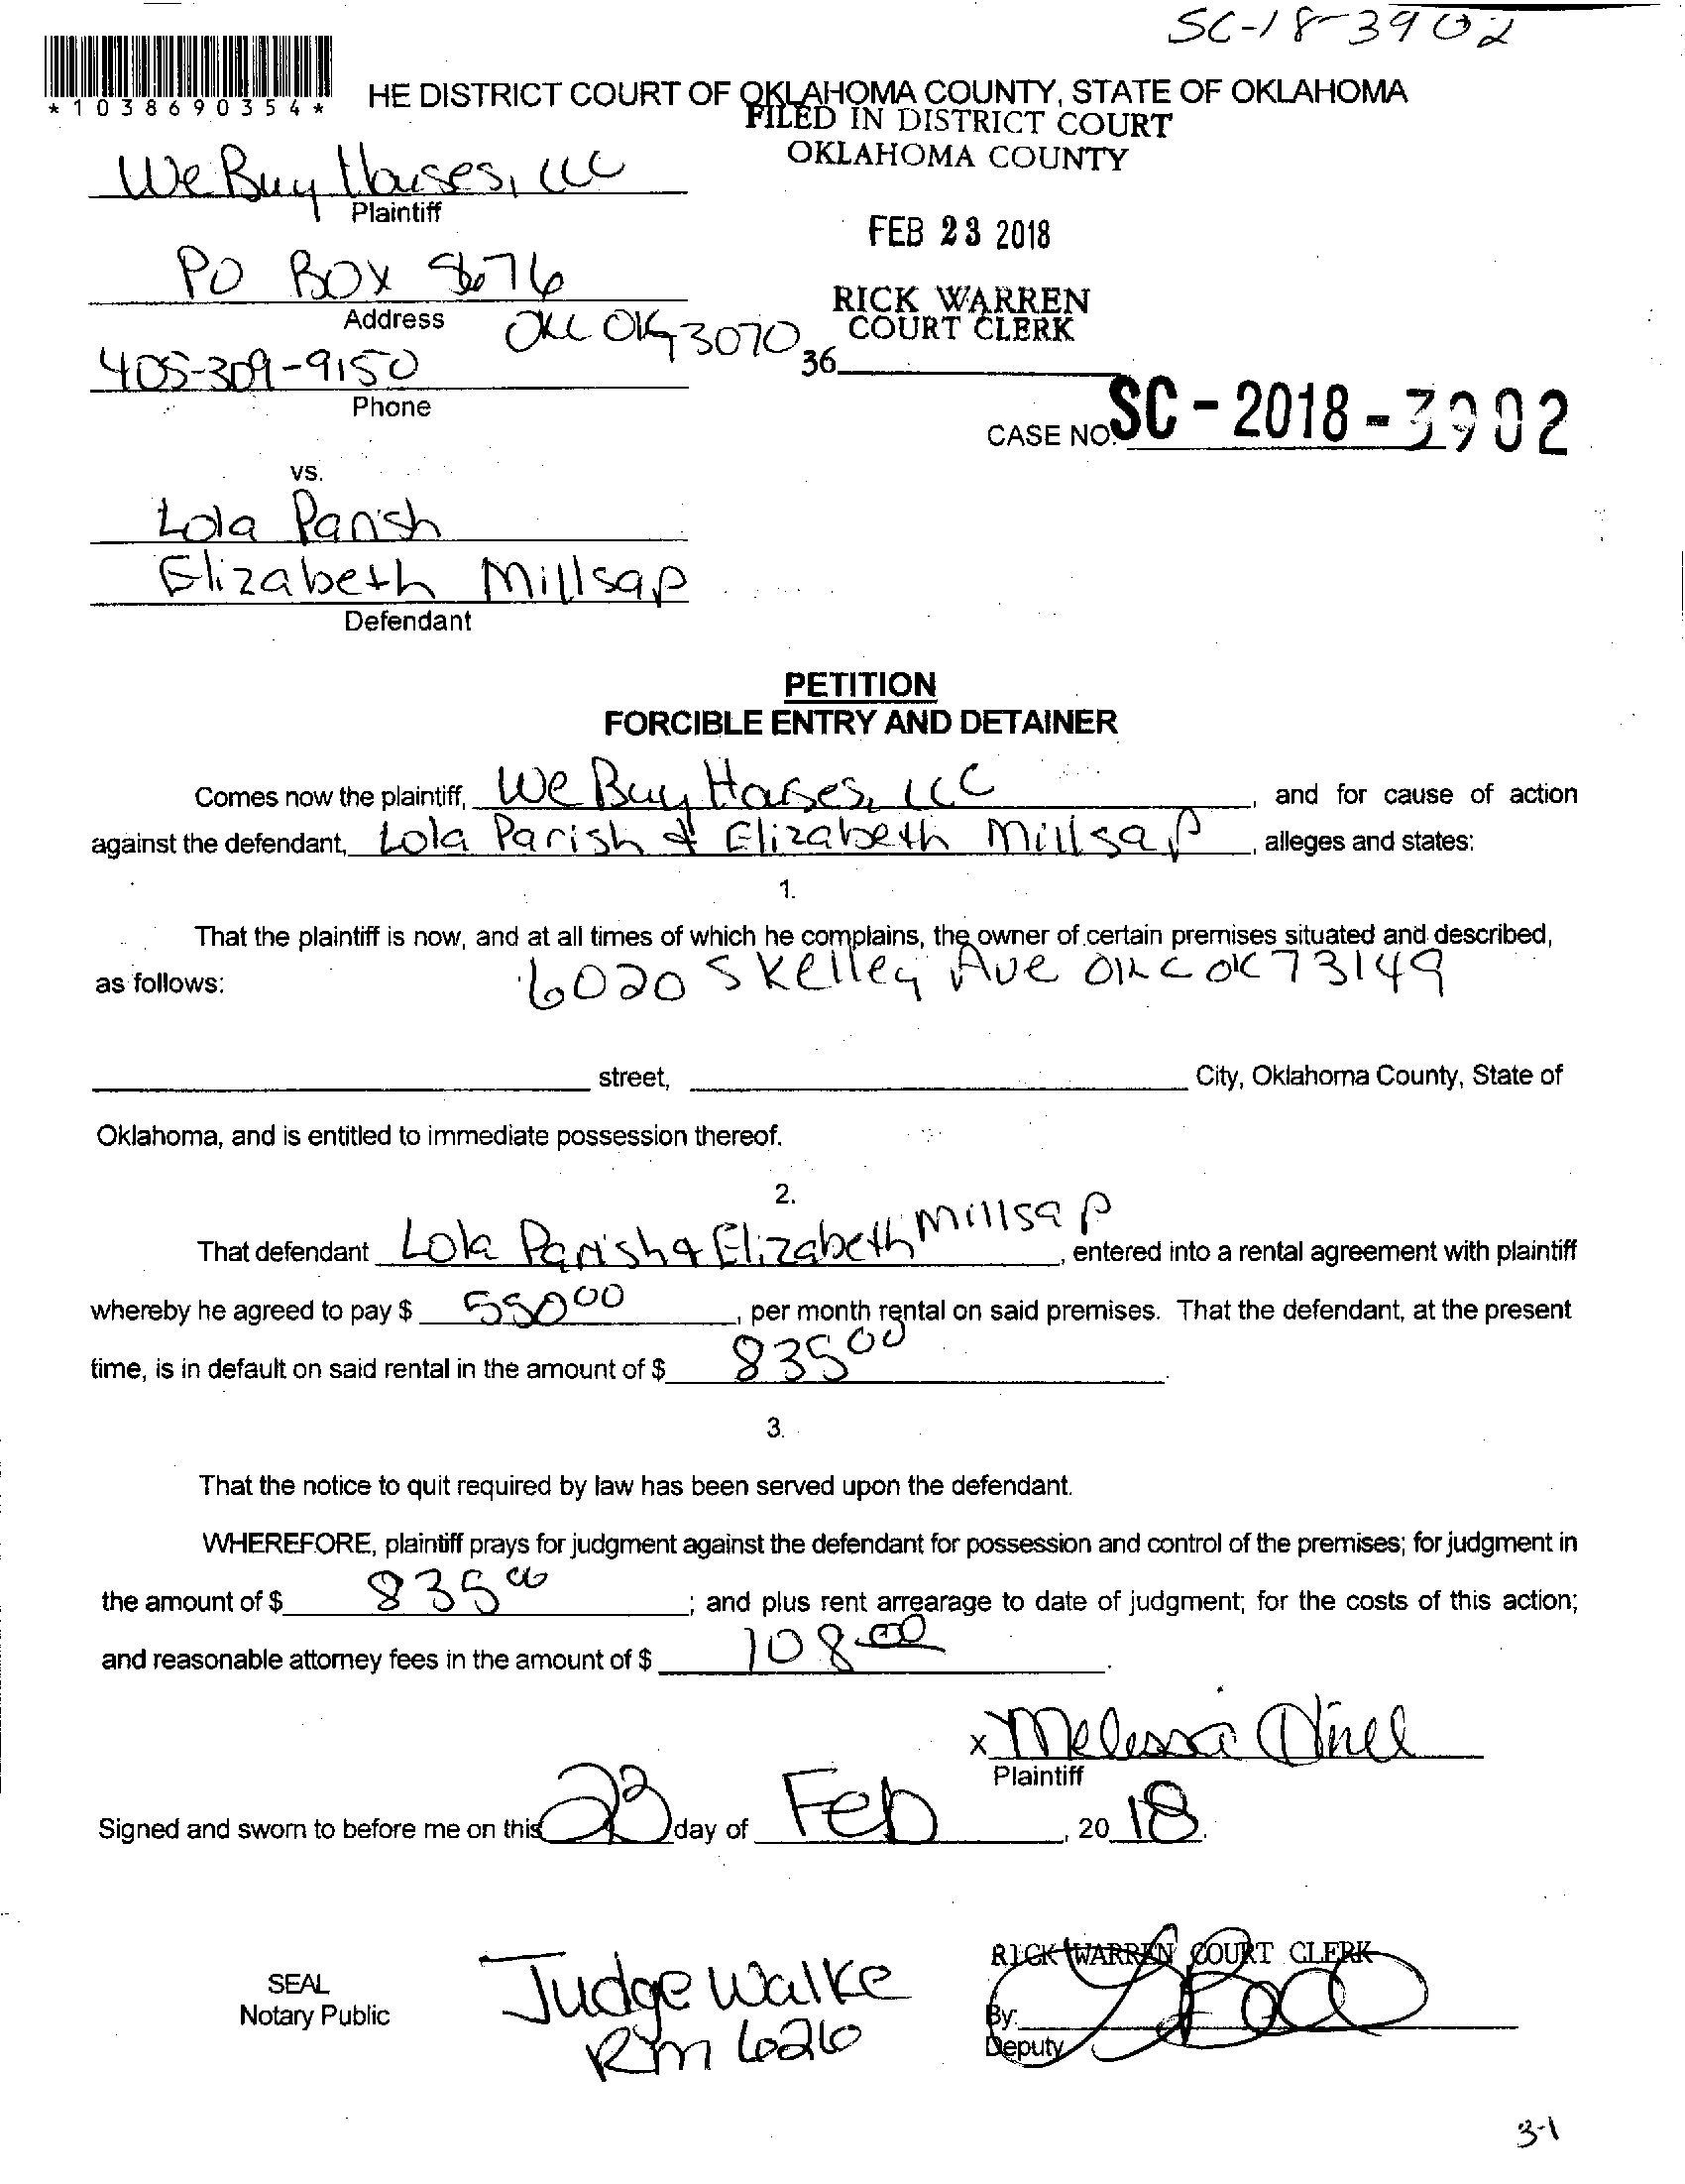 SC-18-3902
*1038690354*
HE DISTRICT COURT OF OKLAHOMA COUNTY, STATE OF OKLAHOMA
FILED IN DISTRICT COURT
OKLAHOMA COUNTY
We Buy Houses, LLC
Plaintiff
FEB 23 2018
PO BOX
RICK WARREN
COURT CLERK
Address
OKC OK 73070
36
405-309-9150
Phone
CASE NO. SC-2018-3902
vs.
Lola Parish
Elizabeth Millsap
Defendant
PETITION
FORCIBLE ENTRY AND DETAINER
Comes now the plaintiff, We Buy Houses, LLC, and for cause of action
against the defendant, Lola Parish & Elizabeth Millsap, alleges and states:
1.
That the plaintiff is now, and at all times of which he complains, the owner of certain premises situated and described,
as follows: 6020 S Kelley Ave OKC OK 73149
street, City, Oklahoma County, State of
Oklahoma, and is entitled to immediate possession thereof.
2.
That defendant Lola Parish & Elizabeth Millsap, entered into a rental agreement with plaintiff
whereby he agreed to pay $ 550 00, per month rental on said premises. That the defendant, at the present
time, is in default on said rental in the amount of $ 835 00.
3.
That the notice to quit required by law has been served upon the defendant.
WHEREFORE, plaintiff prays for judgment against the defendant for possession and control of the premises; for judgment in
the amount of $ 835 00; and plus rent arrearage to date of judgment; for the costs of this action;
and reasonable attorney fees in the amount of $ 108.00.
x Melissa
Plaintiff
Signed and sworn to before me on this 23 day of Feb, 20 18.
RICK WARREN COURT CLERK
SEAL
Notary Public
Judge Walke
Rm 626
By:
Deputy
3-1